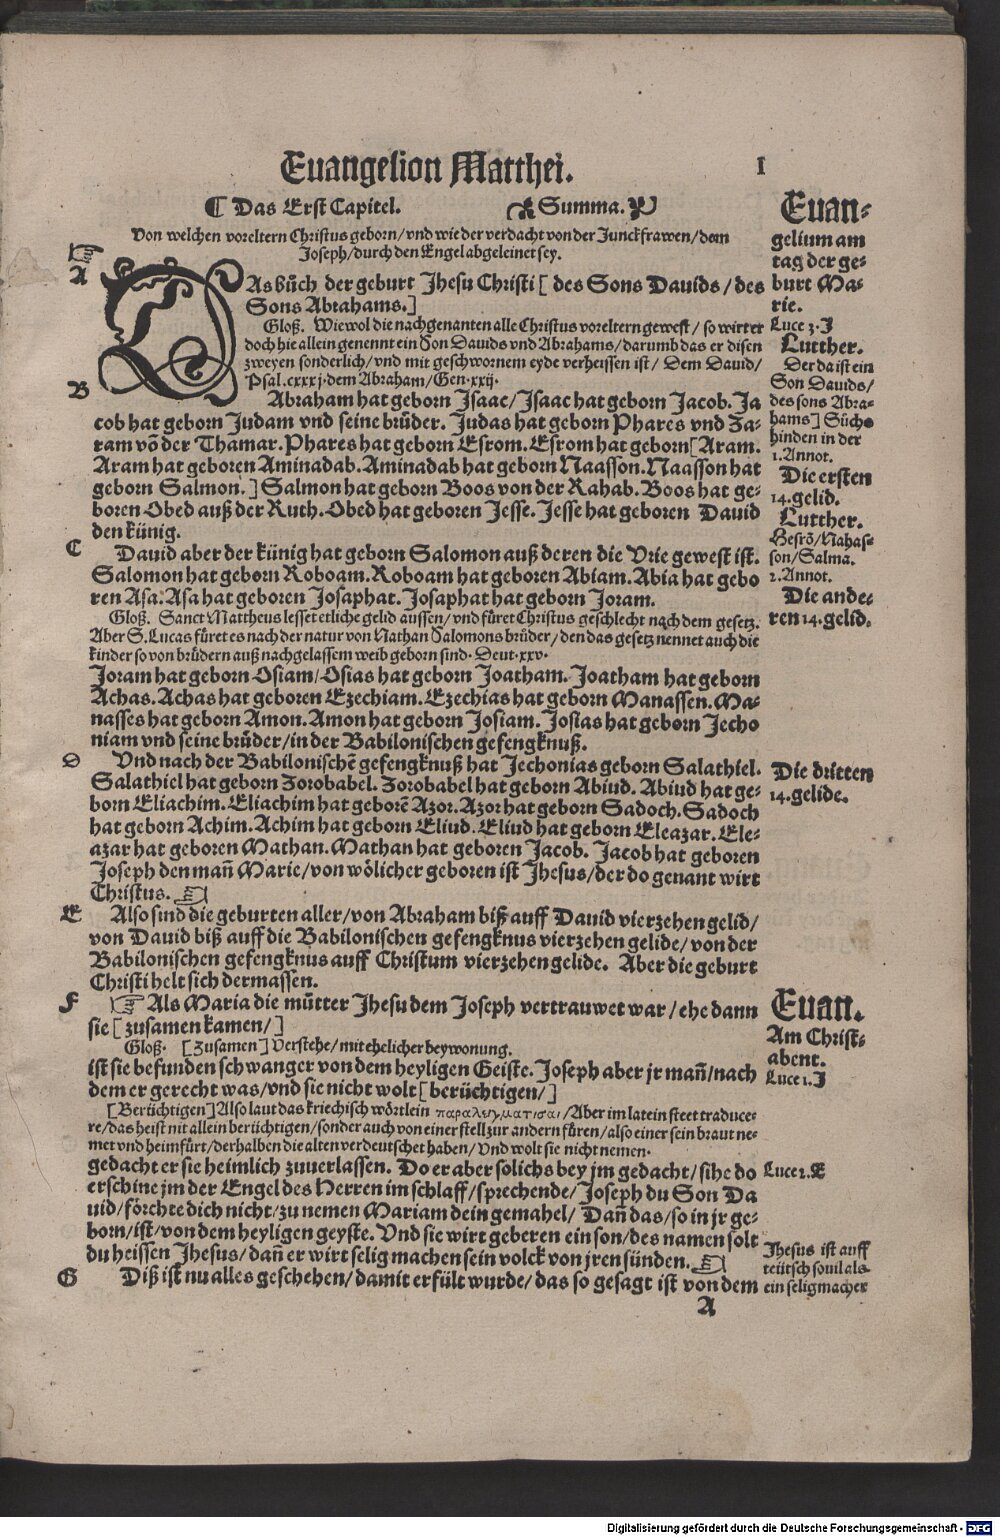 Euangelion Matthei.
I
¶ Das Erst Capitel.
Summa.
Von welchen voreltern Christus geborn/ vnd wie der verdacht von der Junckfrawen/ dem
Joseph/ durch den Engel abgeleinet sey.
A
DAs bůch der geburt Jhesu Christi [ des Sons Dauids / des
Sons Abrahams.]
Gloß. Wiewol die nachgenanten alle Christus voreltern gewest / so wirt er
doch hie allein genennt ein Son Dauids vnd Abrahams / darumb das er disen
zweyen sonderlich / vnd mit geschwornem eyde verheissen ist / Dem Dauid /
Psal. cxxxj. dem Abraham / Gen. xxij.
B
Abraham hat geborn Isaac / Isaac hat geborn Jacob. Ja
cob hat geborn Judam vnd seine brüder. Judas hat geborn Phares vnd Za-
ram võ der Thamar. Phares hat geborn Esrom. Esrom hat geborn [Aram.
Aram hat geboren Aminadab. Aminadab hat geborn Naasson. Naasson hat
geborn Salmon.] Salmon hat geborn Boos von der Rahab. Boos hat ge-
boren Obed auß der Ruth. Obed hat geboren Jesse. Jesse hat geboren Dauid
den künig.
C
Dauid aber der künig hat geborn Salomon auß deren die Vrie gewest ist.
Salomon hat geborn Roboam. Roboam hat geboren Abiam. Abia hat gebo
ren Asa. Asa hat geboren Josaphat. Josaphat hat geborn Joram.
Gloß. Sanct Mattheus lesset etliche gelid aussen / vnd füret Christus geschlecht nach dem gesetz.
Aber S. Lucas füret es nach der natur von Nathan Salomons brüder / den das gesetz nennet auch die
kinder so von brüdern auß nachgelassem weib geborn sind. Deut. xxv.
Joram hat geborn Osiam / Osias hat geborn Joatham. Joatham hat geborn
Achas. Achas hat geboren Ezechiam. Ezechias hat geborn Manassen. Ma-
nasses hat geborn Amon. Amon hat geborn Josiam. Josias hat geborn Jecho
niam vnd seine brüder / in der Babilonischen gefengknuß.
D
Vnd nach der Babilonischē gefengknuß hat Jechonias geborn Salathiel.
Salathiel hat geborn Zorobabel. Zorobabel hat geborn Abiud. Abiud hat ge-
born Eliachim. Eliachim hat geborē Azor. Azor hat geborn Sadoch. Sadoch
hat geborn Achim. Achim hat geborn Eliud. Eliud hat geborn Eleazar. Ele-
azar hat geboren Mathan. Mathan hat geboren Jacob. Jacob hat geboren
Joseph den mañ Marie / von wölicher geboren ist Jhesus / der do genant wirt
Christus.
E
Also sind die geburten aller / von Abraham biß auff Dauid vierzehen gelid /
von Dauid biß auff die Babilonischen gefengknus vierzehen gelide / von der
Babilonischen gefengknus auff Christum vierzehen gelide. Aber die geburt
Christi helt sich dermassen.
F
Als Maria die mütter Jhesu dem Joseph vertrauwet war / ehe dann
sie [zusamen kamen /]
Gloß. [Zusamen] Verstehe / mit ehelicher beywonung.
ist sie befunden schwanger von dem heyligen Geiste. Joseph aber jr mañ / nach
dem er gerecht was / vnd sie nicht wolt [berüchtigen /]
[Berüchtigen] Also laut das kriechisch wörtlein / Aber im latein steet traduce-
re / das heist nit allein berüchtigen / sonder auch von einer stell zur andern füren / also einer sein braut ne-
met vnd heimfürt / derhalben die alten verdeutschet haben / Vnd wolt sie nicht nemen.
gedacht er sie heimlich zuuerlassen. Do er aber solichs bey jm gedacht / sihe do
erschine jm der Engel des Herren im schlaff / sprechende / Joseph du Son Da
uid / förchte dich nicht / zu nemen Mariam dein gemahel / Dañ das / so in jr ge-
born / ist / von dem heyligen geyste. Vnd sie wirt geberen ein son / des namen solt
du heissen Jhesus / dañ er wirt selig machen sein volck von jren sünden.
G
Diß ist nu alles geschehen / damit erfült wurde / das so gesagt ist von dem
A
Euan-
gelium am
tag der ge-
burt Ma-
rie.
Luce 3. J
Lutther.
Der da ist ein
Son Dauids /
des sons Abra-
hams] Süch
hinden in der
1. Annot.
Die ersten
14. gelid.
Lutther.
Hesrõ / Nahas-
son / Salma.
2. Annot.
Die ande-
ren 14. gelid.
Die dritten
14. gelide.
Euan.
Am Christ-
abent.
Luce 1. J
Luce 1. E
Jhesus ist auff
teütsch souil als
ein seligmacher
Digitalisierung gefördert durch die Deutsche Forschungsgemeinschaft - DFG